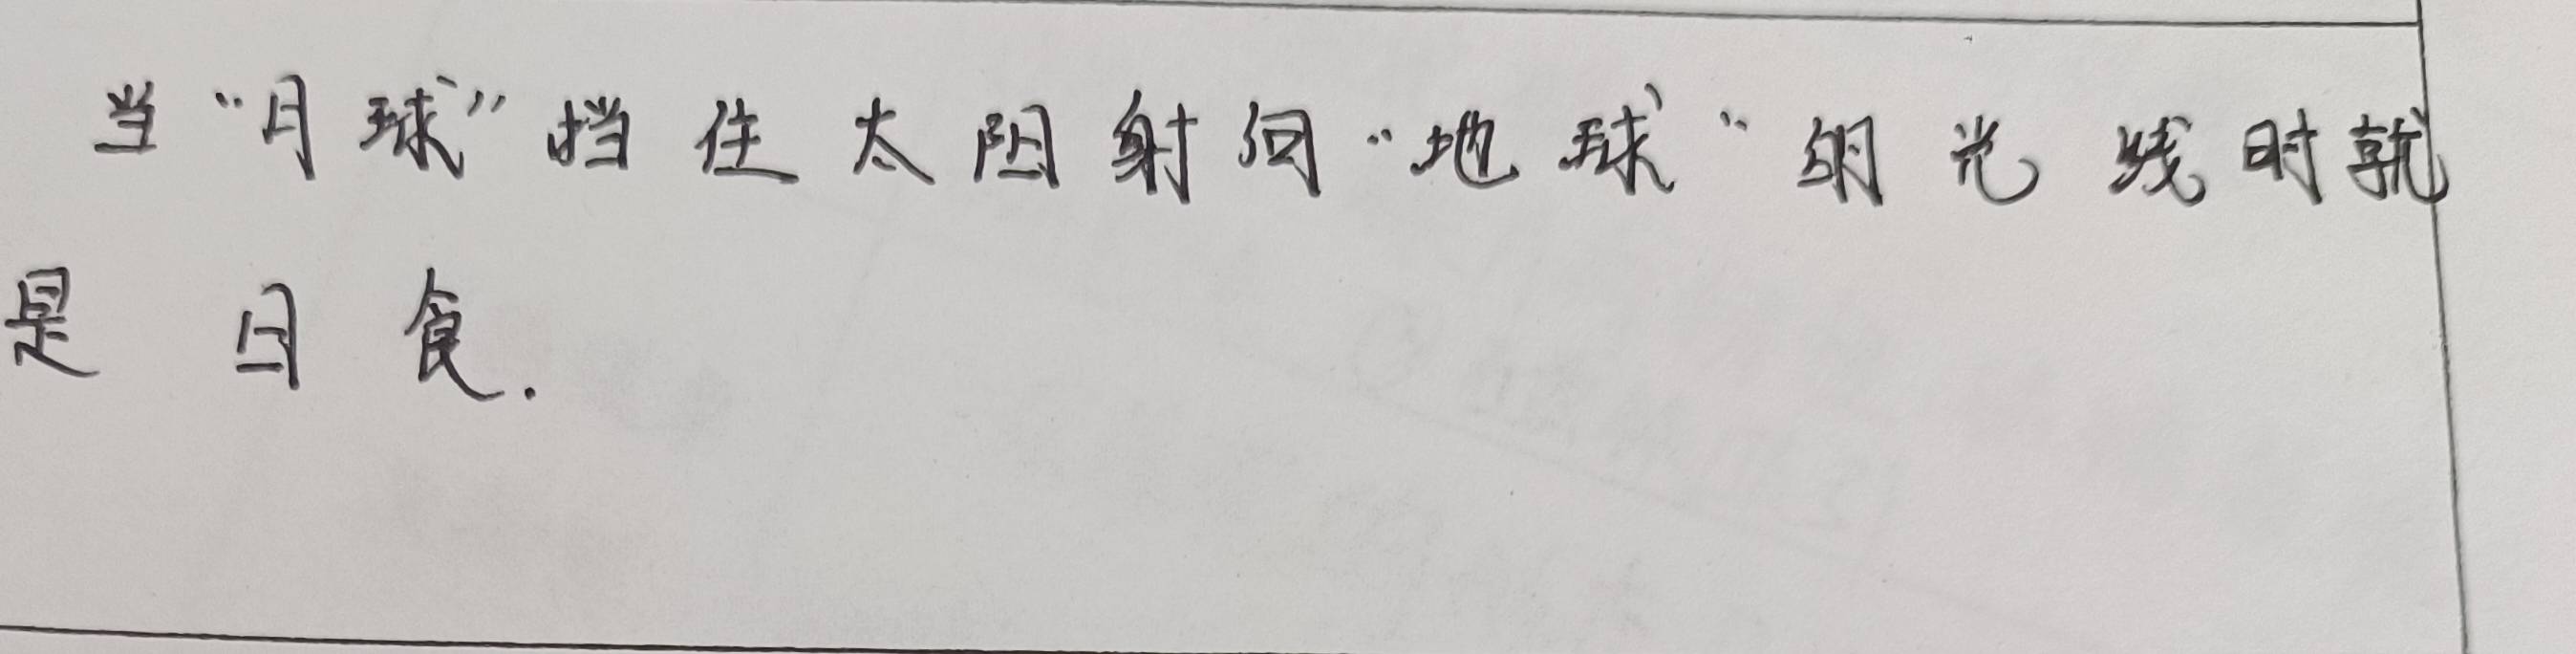 当“月球”挡住太阳射向“地球”的光线时就
是日食.